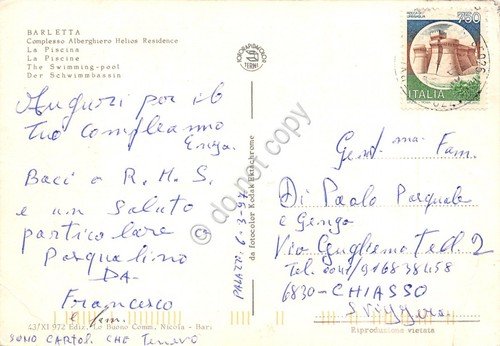 BARLETTA
Complesso Alberghiero Helios Residence
La Piscina
La Piscine
The Swimming-pool
Der Schwimmbassin
Auguri per il
Tuo compleanno
Enza.
Baci a R. M. S.
e un saluto
particolare a
Pasqualino
DA
Francesco
e fam.
43/XI-972 Ediz. Lo Buono Comm. Nicola - Bari
SONO CARTOL. CHE TENEVO
FOTORAPIDACOLOR
TERNI
da fotocolor Kodak Ektachrome
PALAZZ. 6-3-97
do not copy
750
ITALIA
Gent.ma Fam.
Di Paolo Pasquale
e Genza
Via Guglielmo Tell 2
Tel. 0041/9168 38458
6830-CHIASSO
Svizzera
Riproduzione vietata